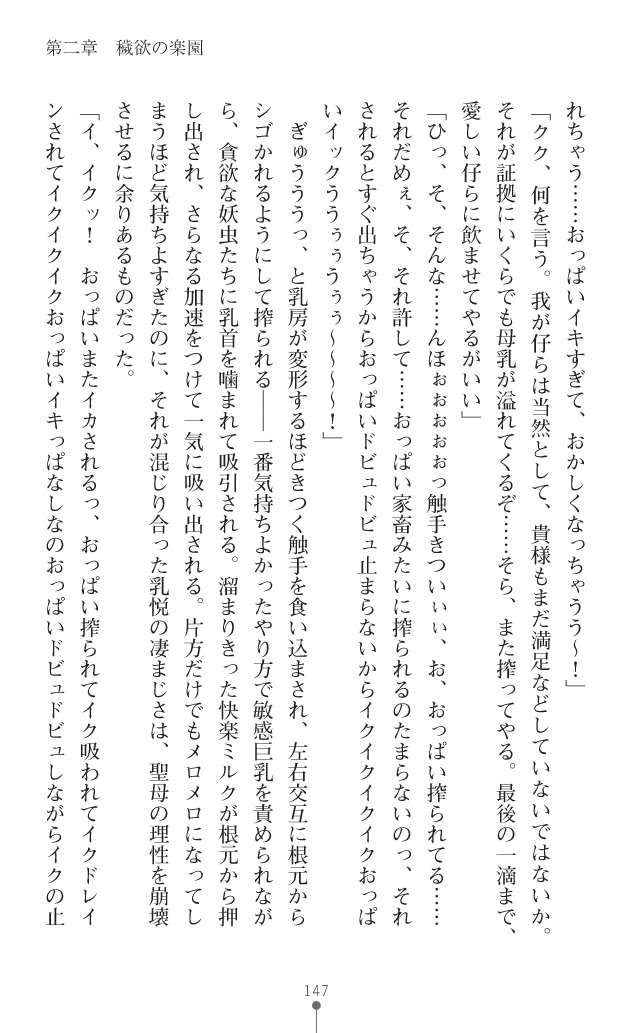 第二章　穢欲の楽園
れちゃう……おっぱいイキすぎて、おかしくなっちゃうう～！」
「クク、何を言う。我が仔らは当然として、貴様もまだ満足などしていないではないか。
それが証拠にいくらでも母乳が溢れてくるぞ……そら、また搾ってやる。最後の一滴まで、
愛しい仔らに飲ませてやるがいい」
「ひっ、そ、そんな……んほぉぉぉぉぉっ触手きついぃぃ、お、おっぱい搾られてる……
それだめぇ、そ、それ許して……おっぱい家畜みたいに搾られるのたまらないのっ、それ
されるとすぐ出ちゃうからおっぱいドビュドビュ止まらないからイクイクイクイクおっぱ
いイックううぅぅうぅぅ～～～～！」
　ぎゅうううっ、と乳房が変形するほどきつく触手を食い込まされ、左右交互に根元から
シゴかれるようにして搾られる――一番気持ちよかったやり方で敏感巨乳を責められなが
ら、貪欲な妖虫たちに乳首を噛まれて吸引される。溜まりきった快楽ミルクが根元から押
し出され、さらなる加速をつけて一気に吸い出される。片方だけでもメロメロになってし
まうほど気持ちよすぎたのに、それが混じり合った乳悦の凄まじさは、聖母の理性を崩壊
させるに余りあるものだった。
「イ、イクッ！　おっぱいまたイカされるっ、おっぱい搾られてイク吸われてイクドレイ
ンされてイクイクイクおっぱいイキっぱなしなのおっぱいドビュドビュしながらイクの止
147